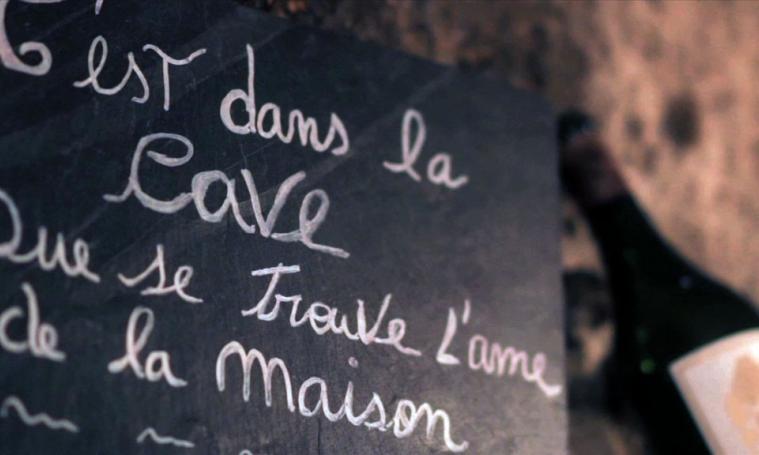 C'est dans la
Cave
Que se trouve l'ame
de la maison